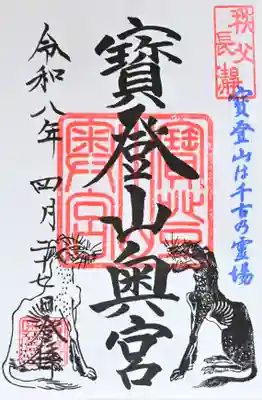 秩父
長瀞
寶登山は千古乃霊場
寶登山奥宮
令和八年 四月二十七日登拝